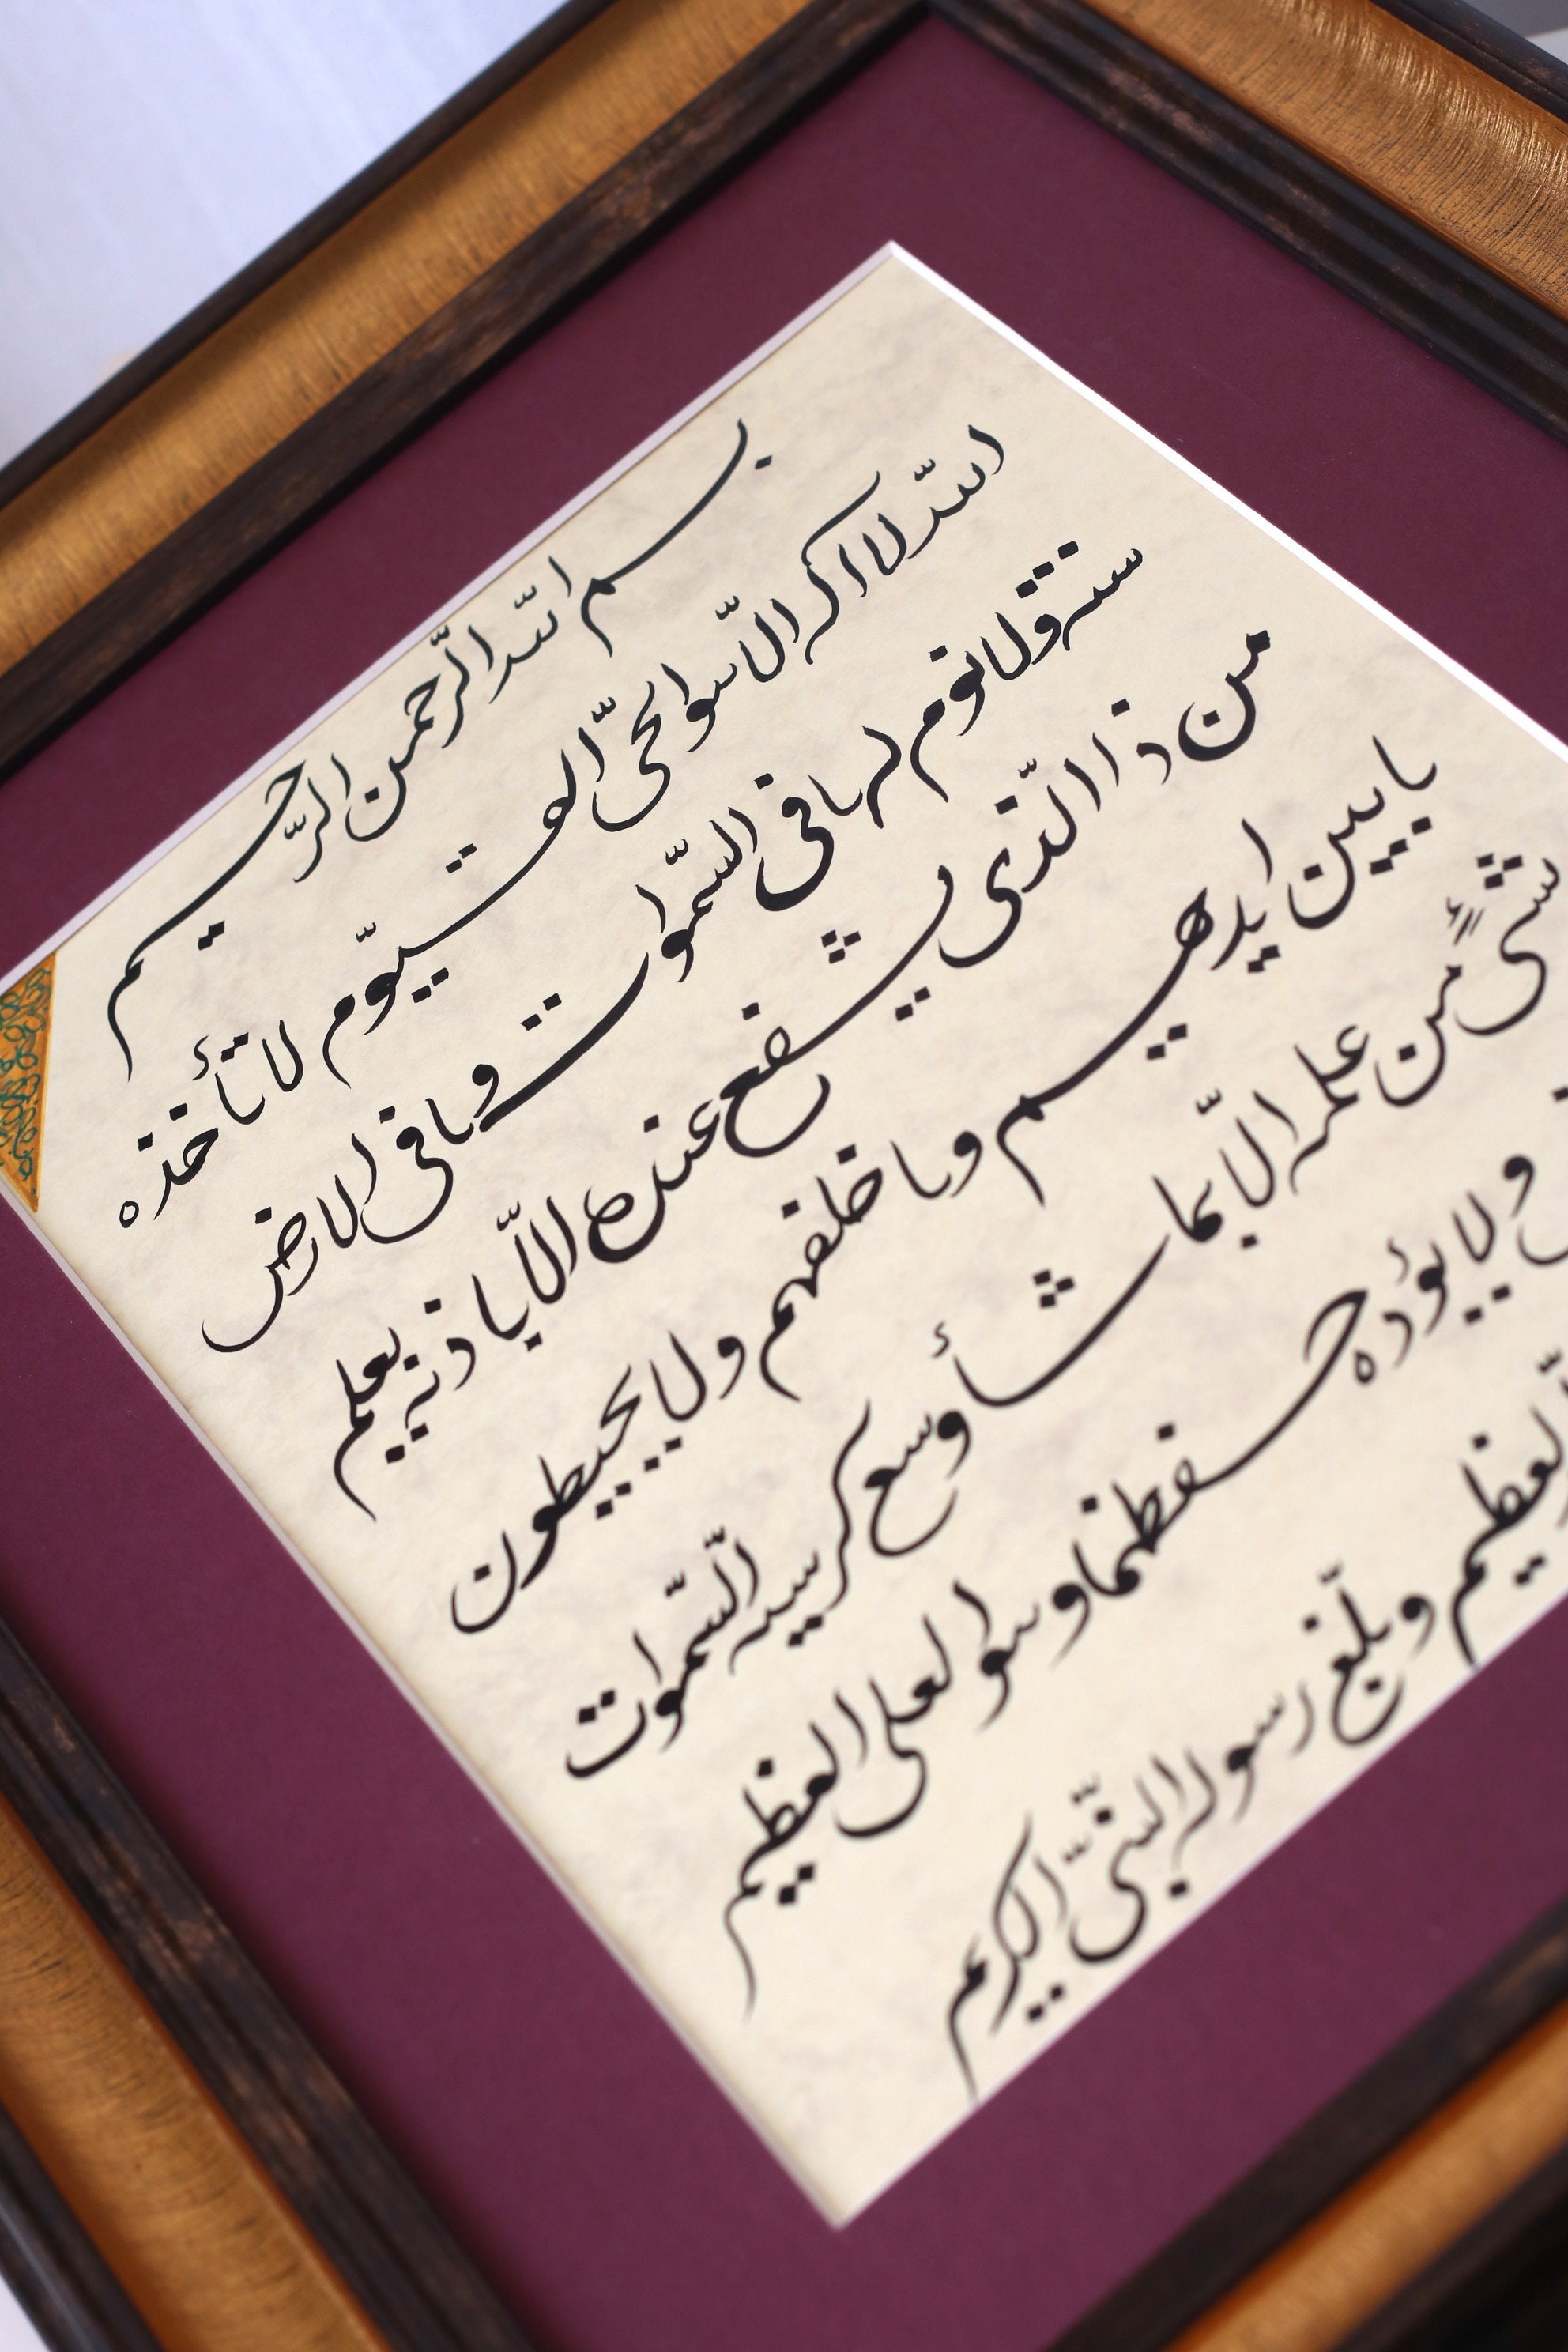 بسم الله الرّحمن الرّحيم
الله لا اله الّا هو الحىّ القيّوم لا تأخذه
سنة ولا نوم له ما فى السّموات وما فى الارض
من ذا الّذى يشفع عنده الّا باذنه يعلم
ما بين ايديهم وما خلفهم ولا يحيطون
بشىءٍ من علمه الّا بما شأ وسع كرسيه السّموات
ولا يؤده حفظهما وهو العلى العظيم
العظيم وبلّغ رسوله النّبىّ الكريم